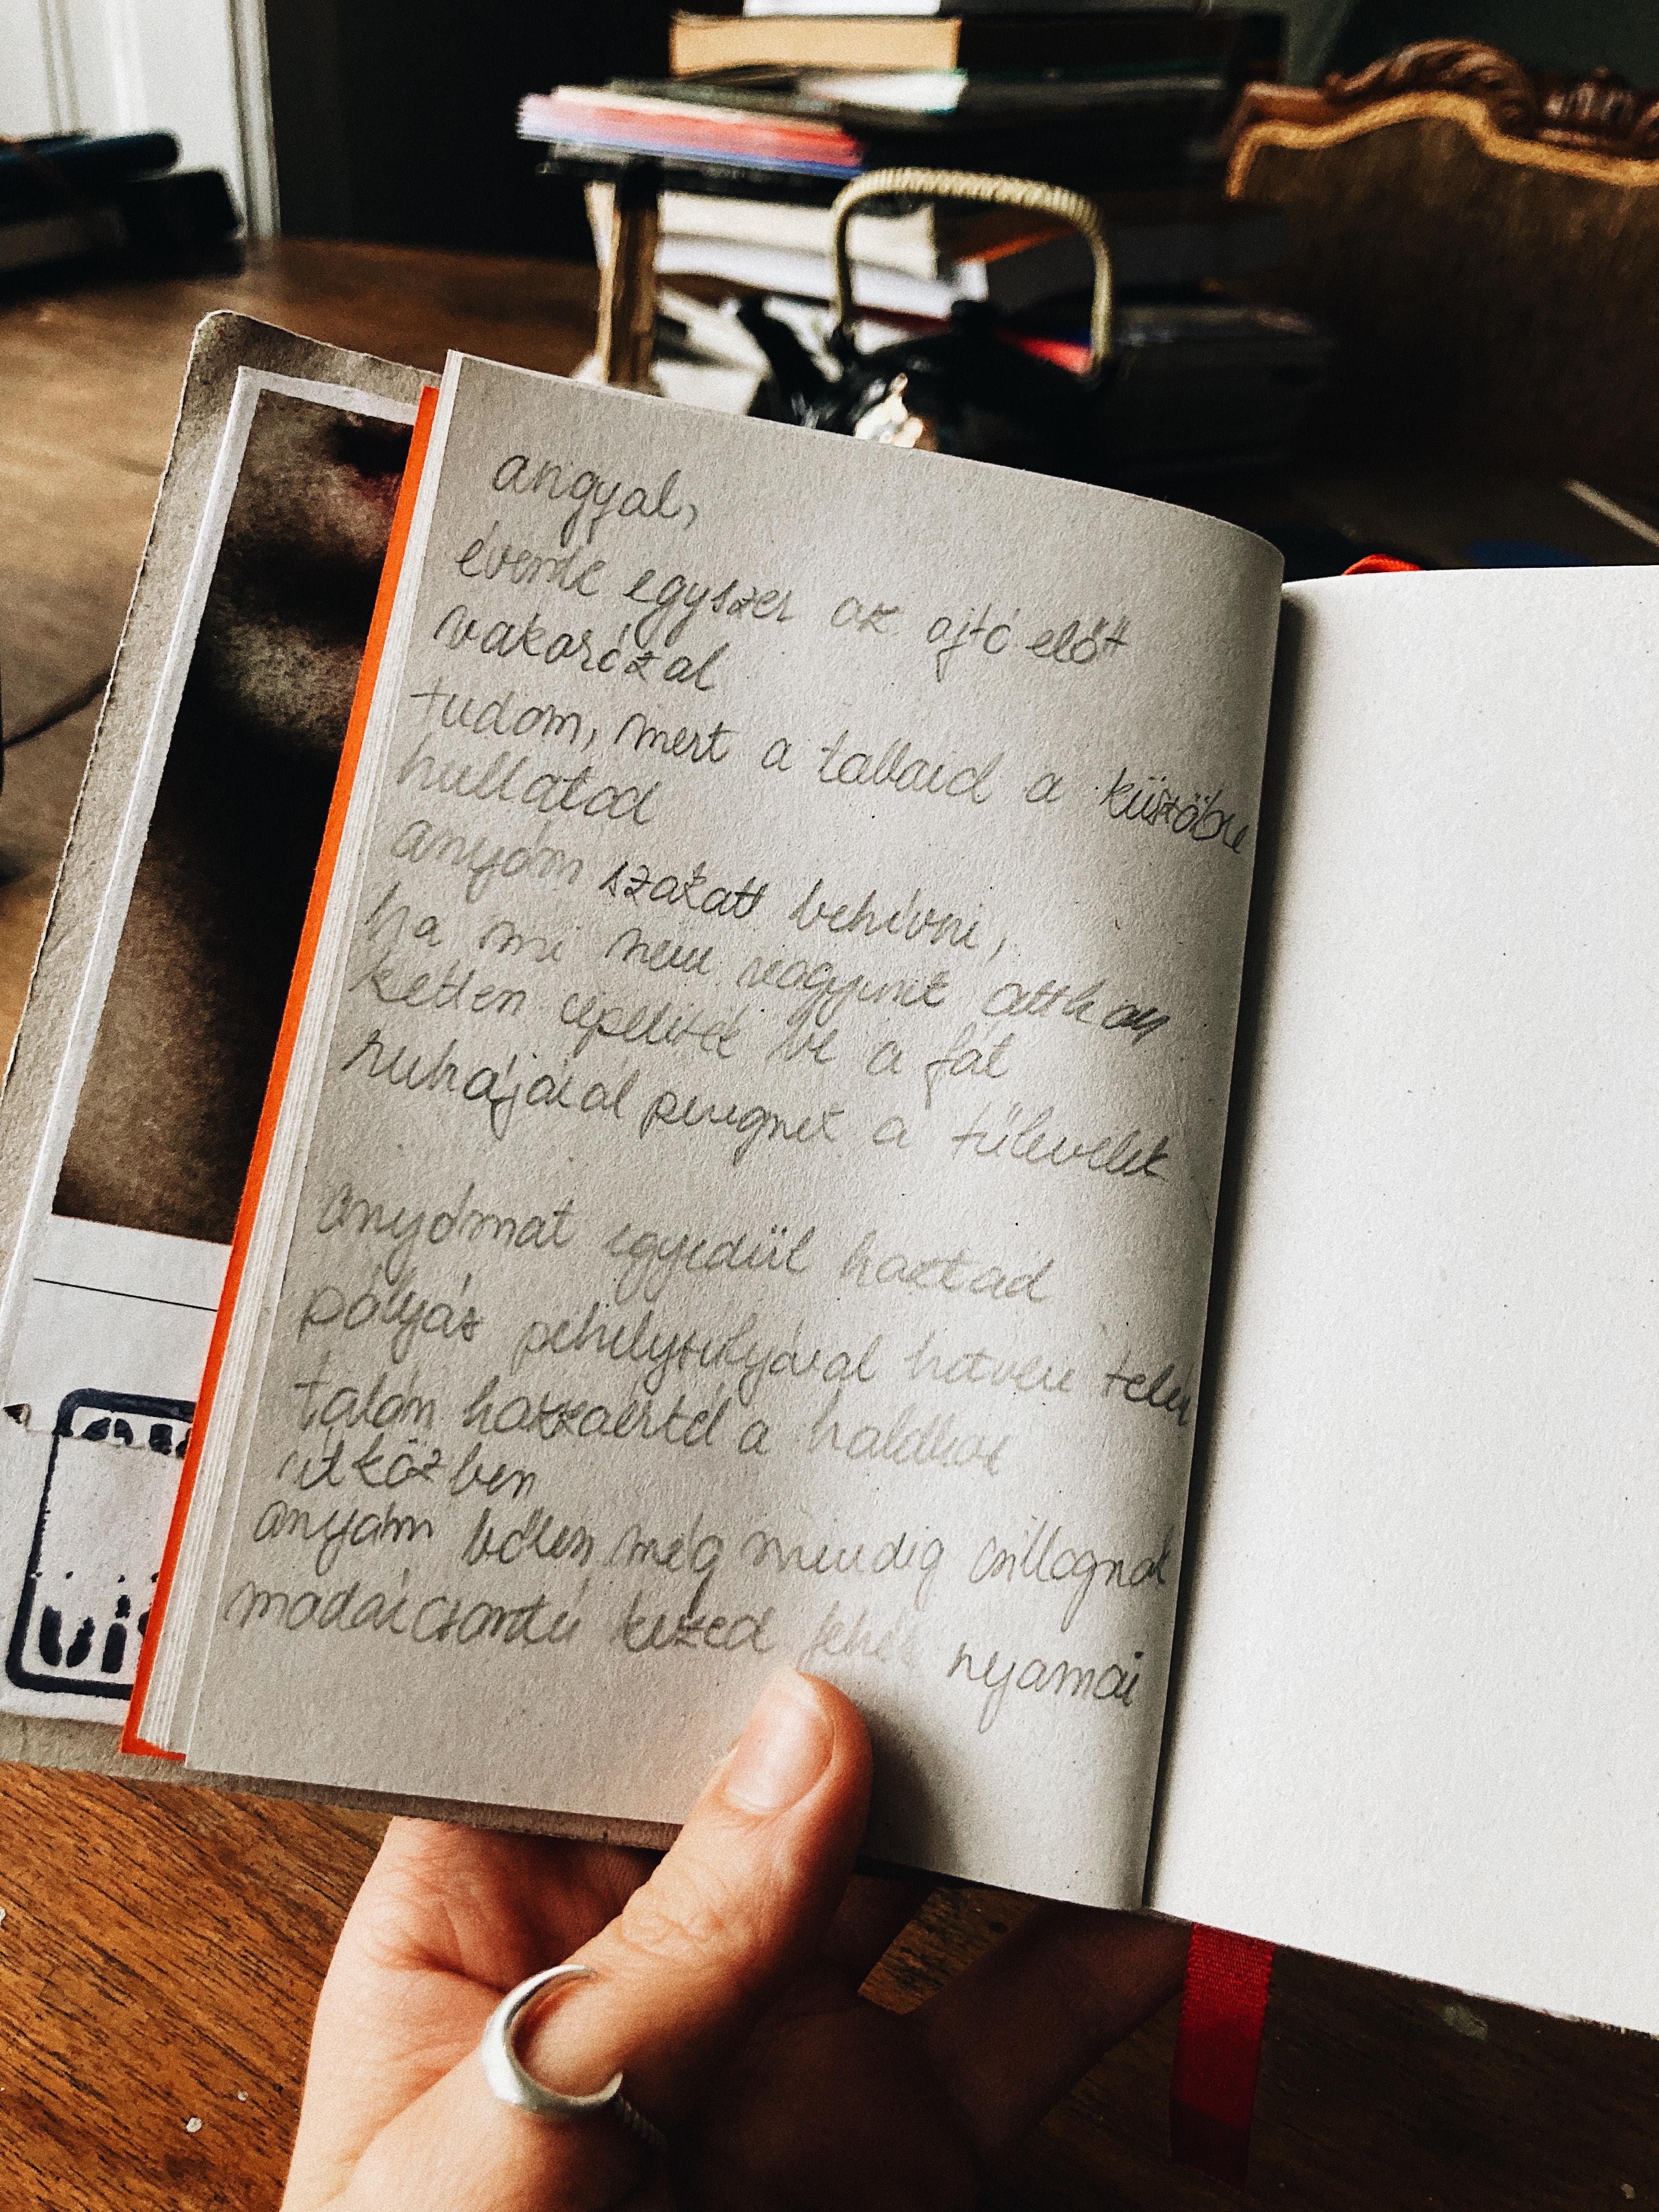 angyal,
évente egyszer az ajtó előtt
vakarózal
tudom, mert a tollaid a küszöbre
hullatod
anyám szokott behívni,
ha mi nem vagyunk otthon
ketten cipelitek be a fát
ruhájáról peregnek a tűlevelek
anyámat egyedül hoztad
pólyás pehelysúlyával hetven telet
talán hozzáértél a
útközben
anyám bőrén még mindig csillognak
madárcsontú kezed fehér nyomai